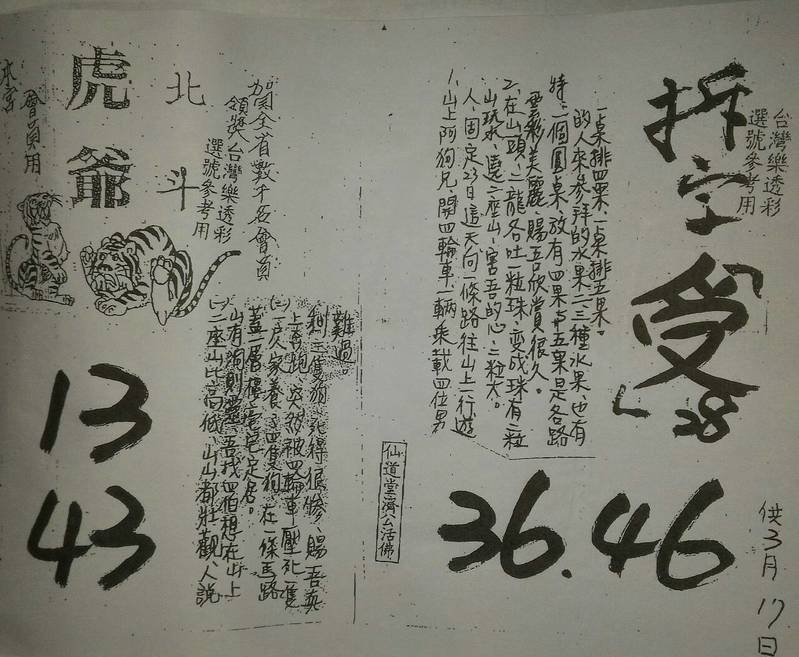 台灣樂透彩
選號參考用
拆字受
28
1、山上阿狗兄、開四輪車一輛乘載四位男
人、固定23日這天向一條路往山上一行遊
山玩水、遠二座山、害吾的心、二粒大。
2、在山頭、二龍各吐一粒珠、変成珠有二粒
雲彩美麗、賜吾欣賞很久。
特、二個圓桌放有四果與五果是各路
的人來參拜的水果二三種水果、也有
一桌排四果、一桌排五果。
36.46
供3月17日
仙道堂濟公活佛
賀全省數千名會員
領獎台灣樂透彩
選號參考用
北斗
虎爺
會員用
本宮
(一)二座山比高低、山山都壯觀、人說
山有洞則靈、吾找四伯想在山上
蓋一層樓宅已定居。
(二)一戶人家養了四隻狗、在一條馬路
上奔跑、突然被四輪車壓死一隻
剩三隻狗、死得很慘、賜吾真
難過。
13
43